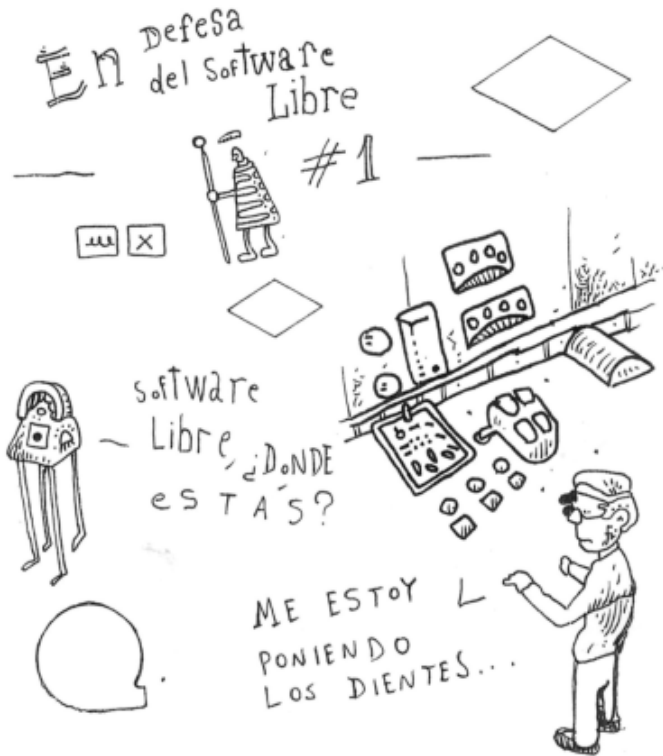 En Defesa
del Software
Libre
#1
x
software
Libre, ¿DONDE
eSTÁS?
ME ESTOY
PONIENDO
LOS DIENTES...